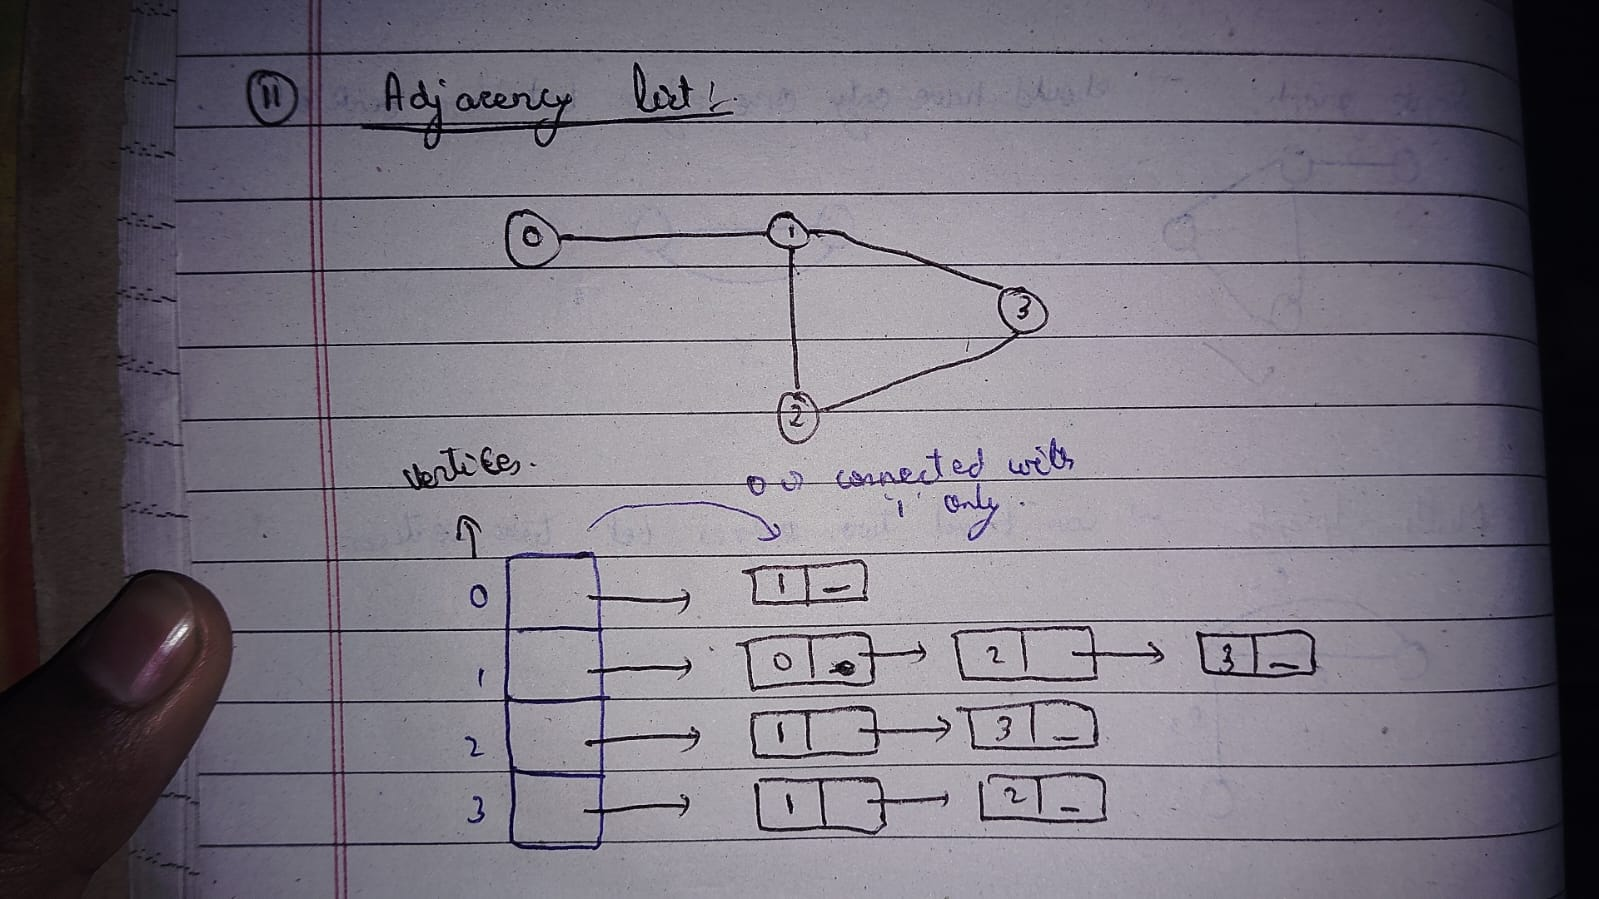 ii Adjacency list :
0 1
3
2
vertices.
0 is connected with
1 only.
0 1
1 0 2 3
2 1 3
3 1 2